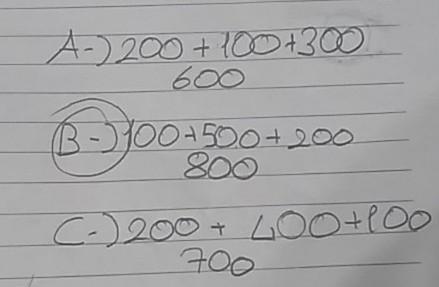 A-) 200 + 100 + 300
600
B-) 100 + 500 + 200
800
C-) 200 + 400 + 100
700